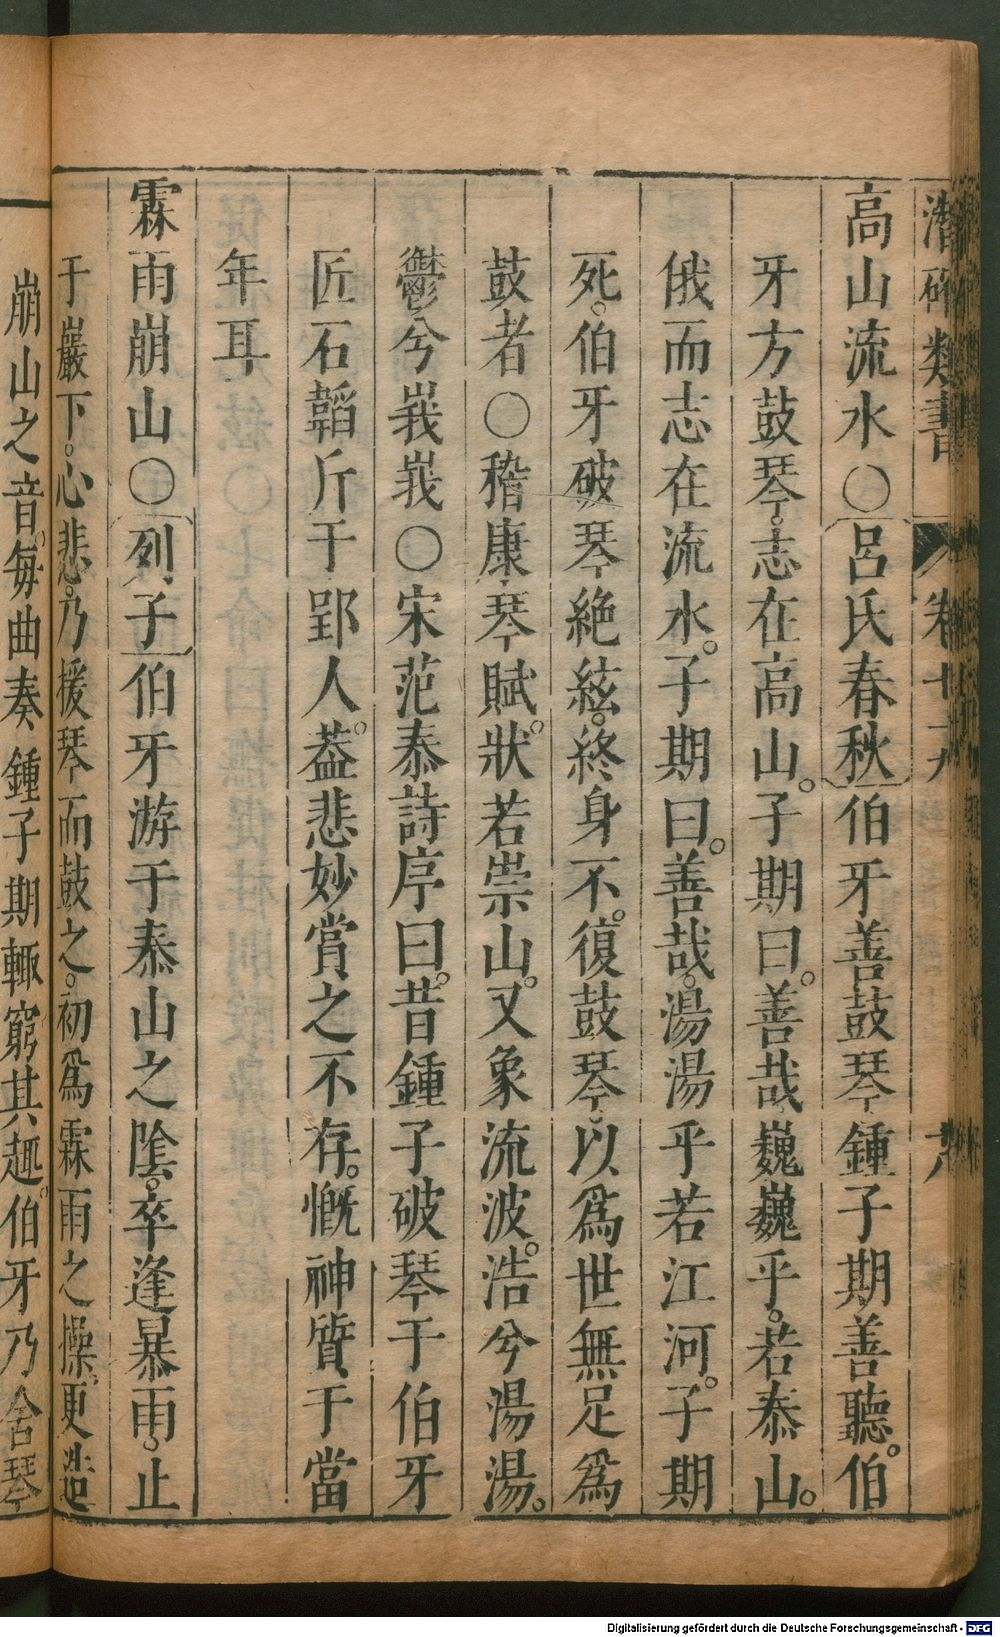 潛確類書 卷七十九 六
高山流水○呂氏春秋伯牙善鼓琴鍾子期善聽。伯
牙方鼓琴。志在高山。子期曰。善哉巍巍乎。若泰山。
俄而志在流水。子期曰。善哉。湯湯乎若江河。子期
死。伯牙破琴絶絃。終身不復鼓琴。以爲世無足爲
鼓者○稽康琴賦。狀若崇山。又象流波。浩兮湯湯。
鬱兮峩峩○宋范泰詩序曰。昔鍾子破琴于伯牙
匠石韜斤于郢人。葢悲妙賞之不存。慨神質于當
年耳
霖雨崩山○列子伯牙游于泰山之陰。卒逢暴雨。止
于巖下。心悲。乃援琴而鼓之。初爲霖雨之操。更造
崩山之音。每曲奏鍾子期輒窮其趣。伯牙乃舍琴
Digitalisierung gefördert durch die Deutsche Forschungsgemeinschaft - DFG